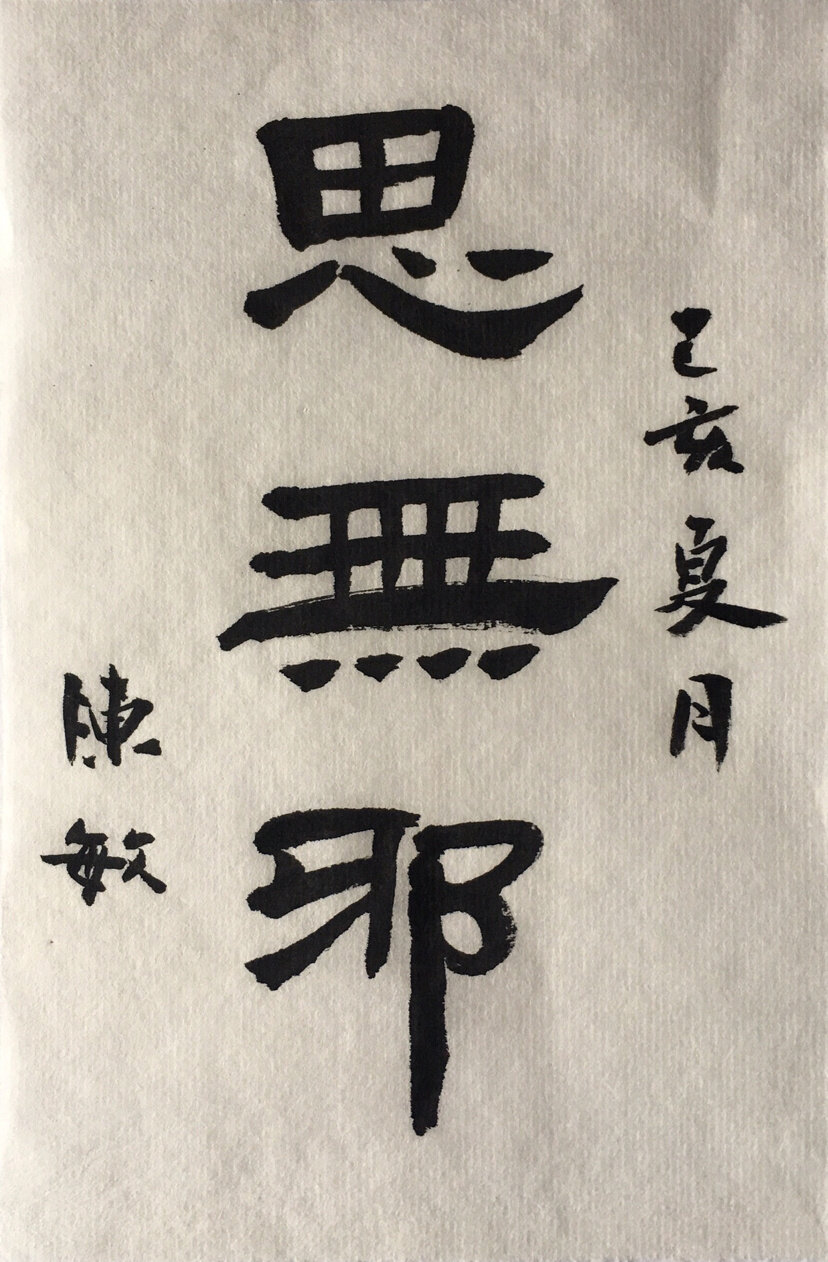 乙亥夏月
思無邪
陳敏